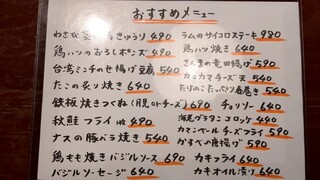 おすすめメニュー
わさび きゅうり 490
鶏ハツのおろしポン酢 490
台湾ミンチのせ揚げ豆腐 540
たこの炙り焼き 640
鉄板焼きつくね(月見orチーズ) 690
秋鮭フライ 1枚 490
ナスの豚バラ焼き 540
鶏もも焼きバジルソース 690
バジルソーセージ 640
ラムのサイコロステーキ 980
鶏ハツ焼き 640
さんまの竜田揚げ 590
カニカマチーズ天 540
たけのこたっぷり春巻き 540
チョリソー 640
海老グラタンコロッケ 440
カマンベールチーズフライ 590
かすべの唐揚げ 590
カキフライ 640
カキオイル漬け 640